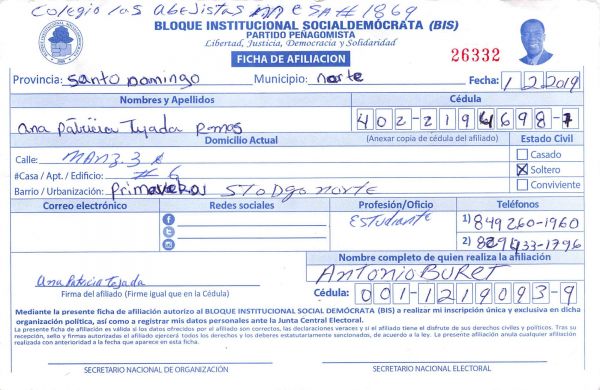 Colegio los Abejistas # 1869
BLOQUE INSTITUCIONAL SOCIALDEMÓCRATA (BIS)
PARTIDO PEÑAGOMISTA
Libertad, Justicia, Democracia y Solidaridad
FICHA DE AFILIACION
26332
Provincia: Santo Domingo Municipio: norte Fecha: 1 2 2019
Nombres y Apellidos Cédula
Ana Patricia Tejada Ramos 402-2194698-7
Domicilio Actual (Anexar copia de cédula del afiliado) Estado Civil
Calle: MANZ. 3 Casado
#Casa / Apt. / Edificio: # 6 Soltero
Barrio / Urbanización: Primaveral STO Dgo norte Conviviente
Correo electrónico Redes sociales Profesión/Oficio Teléfonos
Estudiante 1) 849 260-1960
2)
Nombre completo de quien realiza la afiliación
Antonio Buret
Ana Patricia Tejada
Firma del afiliado (Firme igual que en la Cédula) Cédula: 001-1219093-9
Mediante la presente ficha de afiliación autorizo al BLOQUE INSTITUCIONAL SOCIAL DEMÓCRATA (BIS) a realizar mi inscripción única y exclusiva en dicha
organización política, así como a registrar mis datos personales ante la Junta Central Electoral.
La presente ficha de afiliación es válida si los datos ofrecidos por el afiliado son correctos, las declaraciones veraces y si el afiliado tiene el disfrute de sus derechos civiles y políticos. Tras su
recepción, sello y firmas autorizadas el afiliado ejercerá todos los derechos y los deberes estatutariamente sancionados, de acuerdo a la ley. La presente afiliación anula cualquier afiliación
realizada con anterioridad a la fecha que aparece en esta ficha.
SECRETARIO NACIONAL DE ORGANIZACIÓN SECRETARIO NACIONAL ELECTORAL